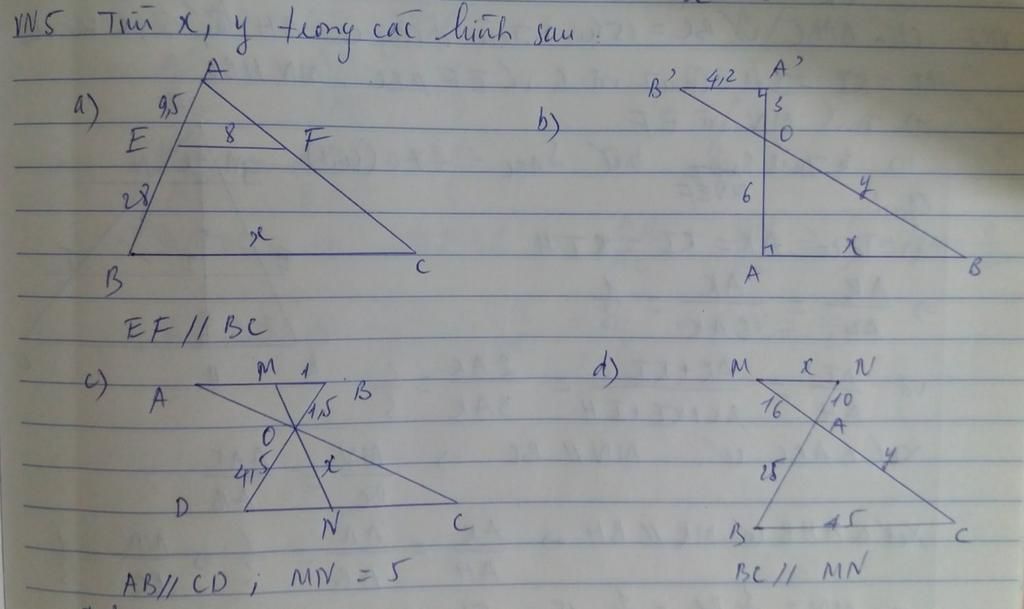 VN5 Tìm x, y trong các hình sau:
a)
A
9,5
E
8
F
28
x
B
C
EF // BC
b)
B'
4,2
A'
3
O
6
y
A
x
B
c)
A
M
1
B
1,5
O
4,5
x
D
N
C
AB // CD ; MN = 5
d)
M
x
N
16
10
A
25
y
B
45
C
BC // MN